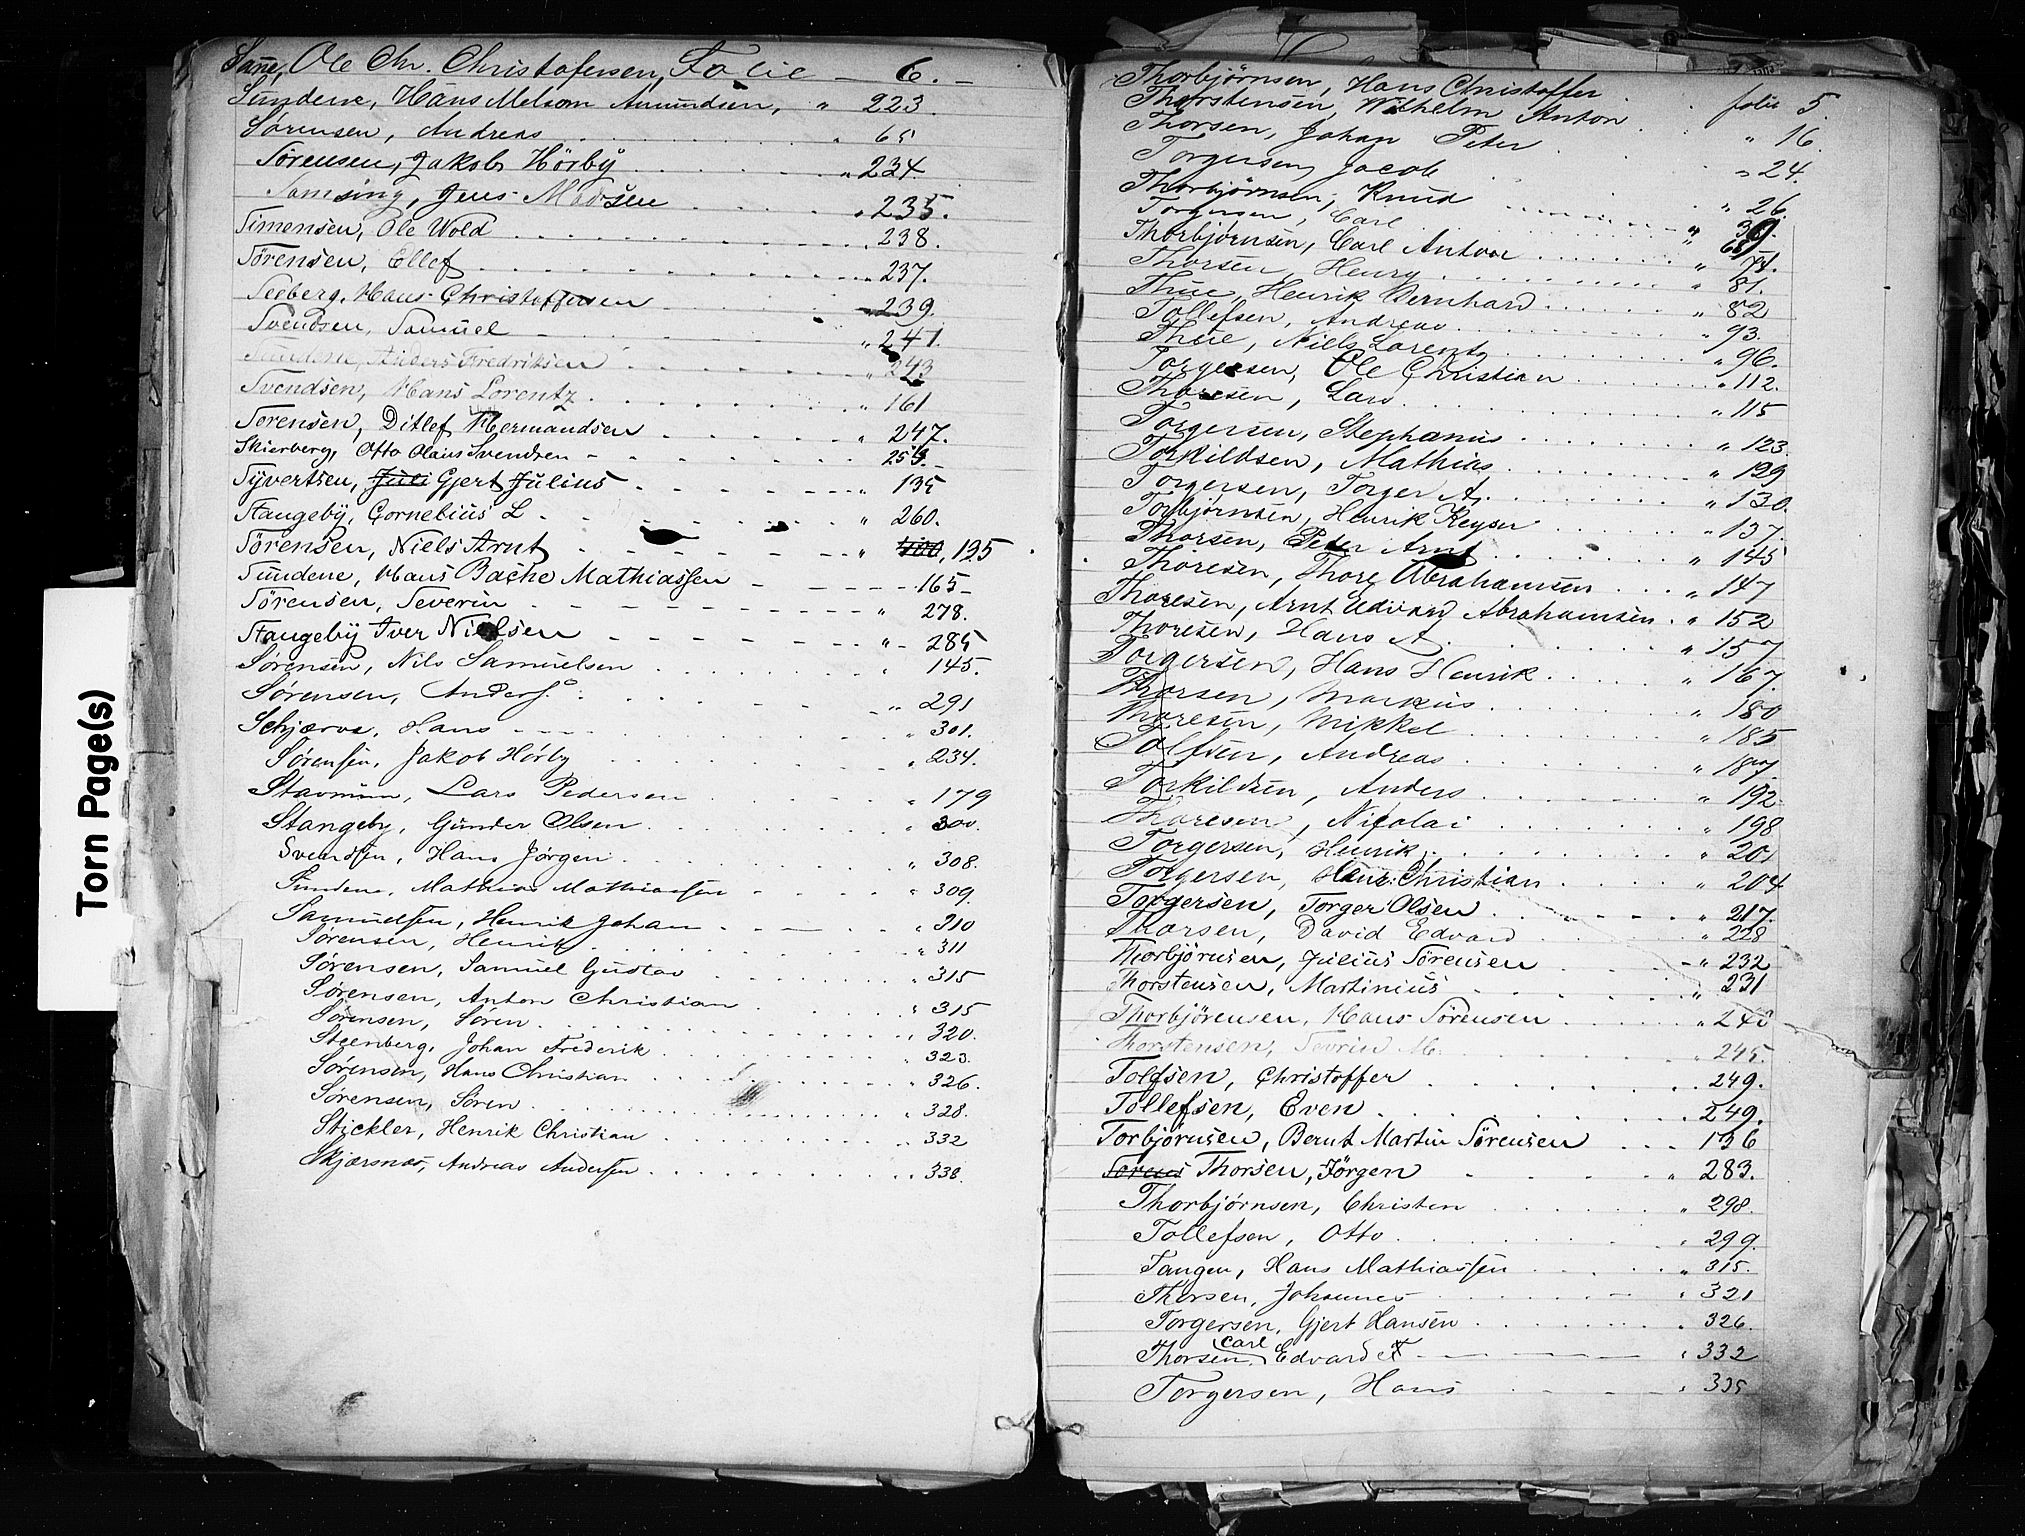 Torn Page(s)
Sanne, Ole Chr. Christofersen, Folie - 6. -
Sundene, Hans Melsom Amundsen, " 223
Sørensen, Andreas " 65
Sørensen, Jakob Hörby " 234.
Samsing, Jens Madsen " 235.
Simensen, Ole Wold " 238.
Sørensen, Ellef " 237.
Seeberg, Hans Christoffersen " 239.
Svendsen, Samuel " 241.
Sundene, Anders Fredriksen " 243
Svendsen, Hans Lorentz " 161
Sørensen, Ditlef Hermandsen " 247.
Skierberg, Otto Olaus Svendsen
Syvertsen, Juli Gjert Julius " 135
Stangeby, Cornelius L " 260.
Sørensen, Niels Arnt " 195
Sundene, Hans Bache Mathiassen 165 -
Sørensen, Severin " 278.
Stangeby Iver Nielsen " 285
Sørensen, Nils Samuelsen " 145.
Sørensen, Anders " 291
Schjærve, Hans " 301.
Sørensen, Jakob Hörby " 234.
Lars Pedersen " 179
Stangeby, Gunder Olsen " 300.
Svendsen, Hans Jørgen " 308.
Sundene, Mathias Mathiassen " 309.
Samuelsen, Henrik Johan " 310
Sørensen, Henrik " 311
Sørensen, Samuel Gustav " 315
Sørensen, Anton Christian " 315
Sørensen, Søren " 320.
Steenberg, Johan Frederik " 323.
Sørensen, Hans Christian " 326.
Sørensen, Søren " 328.
Stickler, Henrik Christian " 332
Skjærsnæs, Andreas Andersen " 338.
Thorbjørnsen, Hans Christoffer folie 5.
Thorstensen, Wilhelm Anton " 16.
Thorsen, Johan Peter " 24.
Torgersen, Jacob " 26.
Thorbjörnsen, Knud
Torgersen, Carl
Thorbjörnsen, Carl Antoni " 74.
Thorsen, Henry " 81.
Thue, Henrik Bernhard " 82
Tollefsen, Andreas " 93.
Thue, Niels Lorentz " 96.
Torgersen, Ole Christian " 112.
Thoresen, Lars " 115
Torgersen, Stephanus " 123.
Torkildsen, Mathias " 129
Torgersen, Torger A. " 130.
Torbjörnsen, Henrik Keyser " 137.
Thorsen, Peter Arnt " 145
Thoresen, Thore Abrahamsen " 147
Thoresen, Arnt Edvard Abrahamsen. " 152
Thoresen, Hans A. " 157
Torgersen, Hans Henrik " 167.
Thorsen, Markus " 180
Thoresen, Mikkel " 185
Tolfsen, Andreas " 187.
Torkildsen, Anders " 192.
Thoresen, Nicolai " 198
Torgersen, Henrik " 201
Torgersen, Christian " 204
Torgersen, Torger Olsen " 217.
Thorsen, David Edvard " 228
Thorbjörnsen, Julius Sörensen " 232
Thorstensen, Martinius " 231
Thorbjörensen, Hans Sörensen
Thorstensen, Sevrin M. " 245.
Tolfsen, Christoffer " 249.
Tollefsen, Even 249.
Torbjörnsen, Bernt Martin Sörensen 136
Thorsen, Jörgen " 283.
Thorbjørnsen, Christen " 298.
Tollefsen, Otto " 299.
Tangen, Hans Mathiassen " 315.
Thorsen, Johannes " 321
Torgersen, Gjert Hansen " 326.
Thorsen, Carl Edvard F " 332
Torgersen, Hans " 335